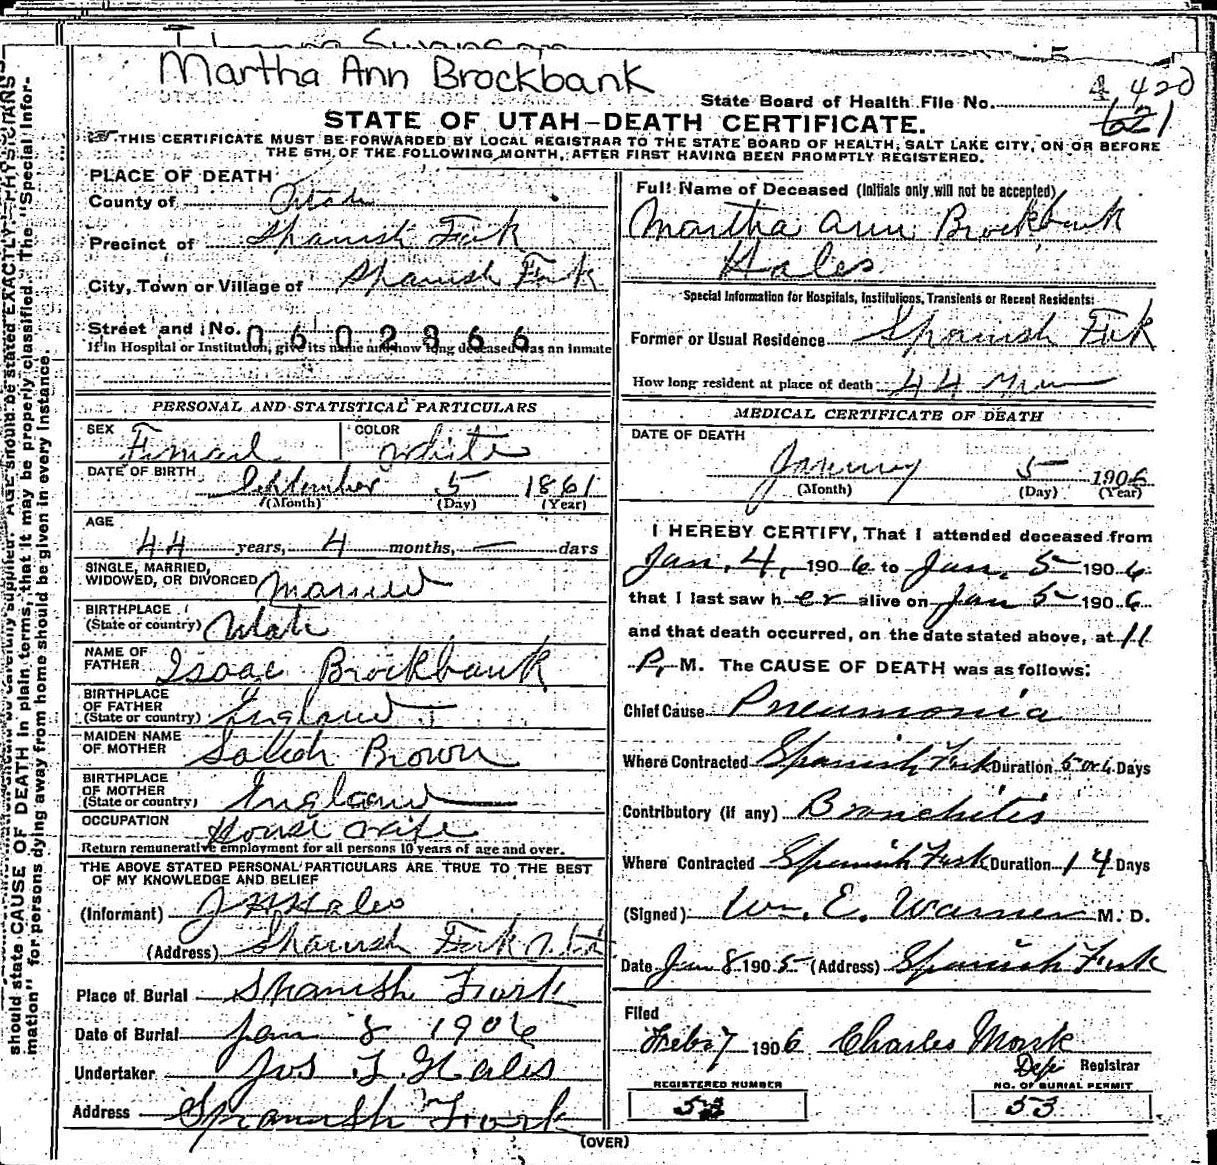 Martha Ann Brockbank
State Board of Health File No. 4 420
621
STATE OF UTAH-DEATH CERTIFICATE.
THIS CERTIFICATE MUST BE FORWARDED BY LOCAL REGISTRAR TO THE STATE BOARD OF HEALTH, SALT LAKE CITY, ON OR BEFORE
THE 5TH OF THE FOLLOWING MONTH, AFTER FIRST HAVING BEEN PROMPTLY REGISTERED.
PLACE OF DEATH
County of Utah
Precinct of Spanish Fork
City, Town or Village of Spanish Fork
Street and No. 0602866
If in Hospital or Institution, give its name and how long deceased was an inmate
PERSONAL AND STATISTICAL PARTICULARS
SEX Femail COLOR White
DATE OF BIRTH September 5 1861
(Month) (Day) (Year)
AGE
44 years, 4 months, — days
SINGLE, MARRIED,
WIDOWED, OR DIVORCED Married
BIRTHPLACE
(State or country) Utah
NAME OF
FATHER Isaac Brockbank
BIRTHPLACE
OF FATHER
(State or country) England
MAIDEN NAME
OF MOTHER Brown
BIRTHPLACE
OF MOTHER
(State or country) England
OCCUPATION House Wife
Return remunerative employment for all persons 10 years of age and over.
THE ABOVE STATED PERSONAL PARTICULARS ARE TRUE TO THE BEST
OF MY KNOWLEDGE AND BELIEF
(Informant) J H Hales
(Address) Spanish Fork Utah
Place of Burial Spanish Fork
Date of Burial Jan 8 1906
Undertaker Jos F Hales
Address Spanish Fork
Full Name of Deceased (Initials only will not be accepted)
Martha Ann Brockbank
Hales
Special Information for Hospitals, Institutions, Transients or Recent Residents:
Former or Usual Residence Spanish Fork
How long resident at place of death 44
MEDICAL CERTIFICATE OF DEATH
DATE OF DEATH
January 5 1906
(Month) (Day) (Year)
I HEREBY CERTIFY, That I attended deceased from
Jan. 4, 1906 to Jan. 5 1906
that I last saw her alive on Jan 5 1906
and that death occurred, on the date stated above, at 11
P. M. The CAUSE OF DEATH was as follows:
Chief Cause Pneumonia
Where Contracted Spanish Fork Duration 5 or 6 Days
Contributory (if any) Bronchitis
Where Contracted Spanish Fork Duration 14 Days
(Signed) Wm. E. Warner M. D.
Date Jan 8 1905 (Address) Spanish Fork
Filed
Feb 7 1906 Charles Monk
Dep Registrar
REGISTERED NUMBER
NO. OF BURIAL PERMIT
53
(OVER)
should state CAUSE OF DEATH in plain terms, that it may be properly classified. The "Special Infor-
mation" for persons dying away from home should be given in every instance.